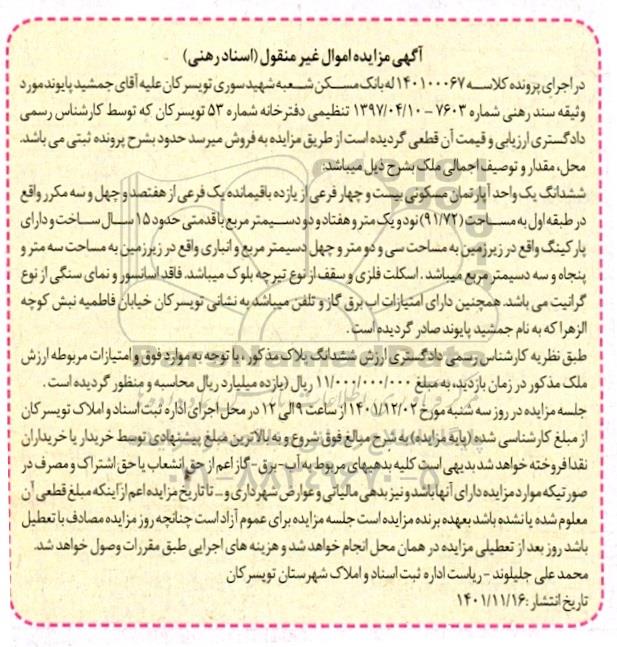 آگهی مزایده اموال غیر منقول (اسناد رهنی)
در اجرای پرونده کلاسه ۱۴۰۱۰۰۰۶۷ له بانک مسکن شعبه شهید سوری تویسرکان علیه آقای جمشید پایوند مورد
وثیقه سند رهنی شماره ۷۶۰۳ - ۱۳۹۷/۰۴/۱۰ تنظیمی دفترخانه شماره ۵۳ تویسرکان که توسط کارشناس رسمی
دادگستری ارزیابی و قیمت آن قطعی گردیده است از طریق مزایده به فروش میرسد حدود بشرح پرونده ثبتی می باشد.
محل، مقدار و توصیف اجمالی ملک بشرح ذیل میباشد:
ششدانگ یک واحد آپارتمان مسکونی بیست و چهار فرعی از یازده باقیمانده یک فرعی از هفتصد و چهل و سه مکرر واقع
در طبقه اول به مساحت (۹۱/۷۲) نود و یک متر و هفتاد و دو دسیمتر مربع باقدمتی حدود ۱۵ سال ساخت و دارای
پارکینگ واقع در زیرزمین به مساحت سی و دو متر و چهل دسیمتر مربع و انباری واقع در زیرزمین به مساحت سه متر و
پنجاه و سه دسیمتر مربع میباشد . اسکلت فلزی و سقف از نوع تیرچه بلوک میباشد. فاقد آسانسور و نمای سنگی از نوع
گرانیت می باشد. همچنین دارای امتیازات اب برق گاز و تلفن میباشد به نشانی تویسرکان خیابان فاطمیه نبش کوچه
الزهرا که به نام جمشید پایوند صادر گردیده است .
طبق نظریه کارشناس رسمی دادگستری ارزش ششدانگ پلاک مذکور ، با توجه به موارد فوق و امتیازات مربوطه ارزش
ملک مذکور در زمان بازدید، به مبلغ ۱۱/۰۰۰/۰۰۰/۰۰۰ ریال (یازده میلیارد ریال محاسبه و منظور گردیده است .
جلسه مزایده در روز سه شنبه مورخ ۱۴۰۱/۱۲/۰۲ از ساعت ۹ الی ۱۲ در محل اجرای اداره ثبت اسناد و املاک تویسرکان
از مبلغ کارشناسی شده (پایه مزایده) به شرح مبالغ فوق شروع و به بالاترین مبلغ پیشنهادی توسط خریدار یا خریداران
نقدا فروخته خواهد شد بدیهی است کلیه بدهیهای مربوط به آب - برق - گاز اعم از حق انشعاب یا حق اشتراک و مصرف در
صورتیکه موارد مزایده دارای آنها باشد و نیز بدهی مالیاتی و عوارض شهرداری و ... تا تاریخ مزایده اعم از اینکه مبلغ قطعی آن
معلوم شده یا نشده باشد بعهده برنده مزایده است جلسه مزایده برای عموم آزاد است چنانچه روز مزایده مصادف با تعطیل
باشد روز بعد از تعطیلی مزایده در همان محل انجام خواهد شد و هزینه های اجرایی طبق مقررات وصول خواهد شد.
محمد علی جلیلوند - ریاست اداره ثبت اسناد و املاک شهرستان تویسرکان
تاریخ انتشار : ۱۴۰۱/۱۱/۱۶